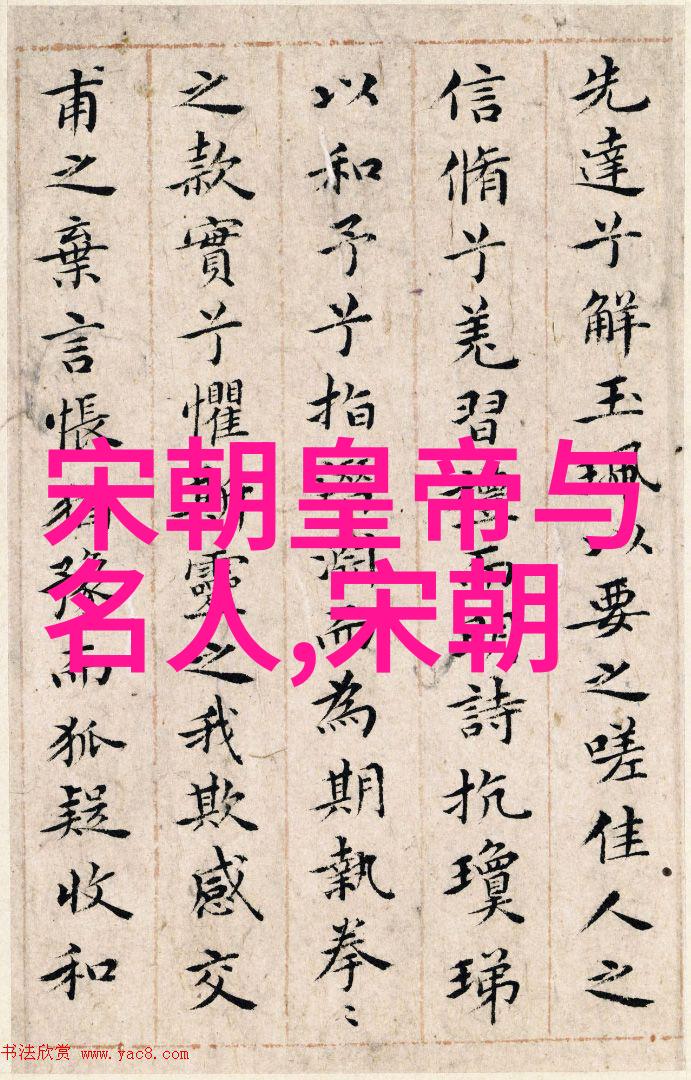 先達兮解玉珮以要之嗟佳人之
信脩兮羌習禮而明詩抗瓊珶
以和予兮指潛淵而為期執拳〻
之款實兮懼斯靈之我欺感交
甫之棄言悵猶豫而狐疑收和
宋朝皇帝与
名人,宋朝
书法欣赏 www.yac8.com